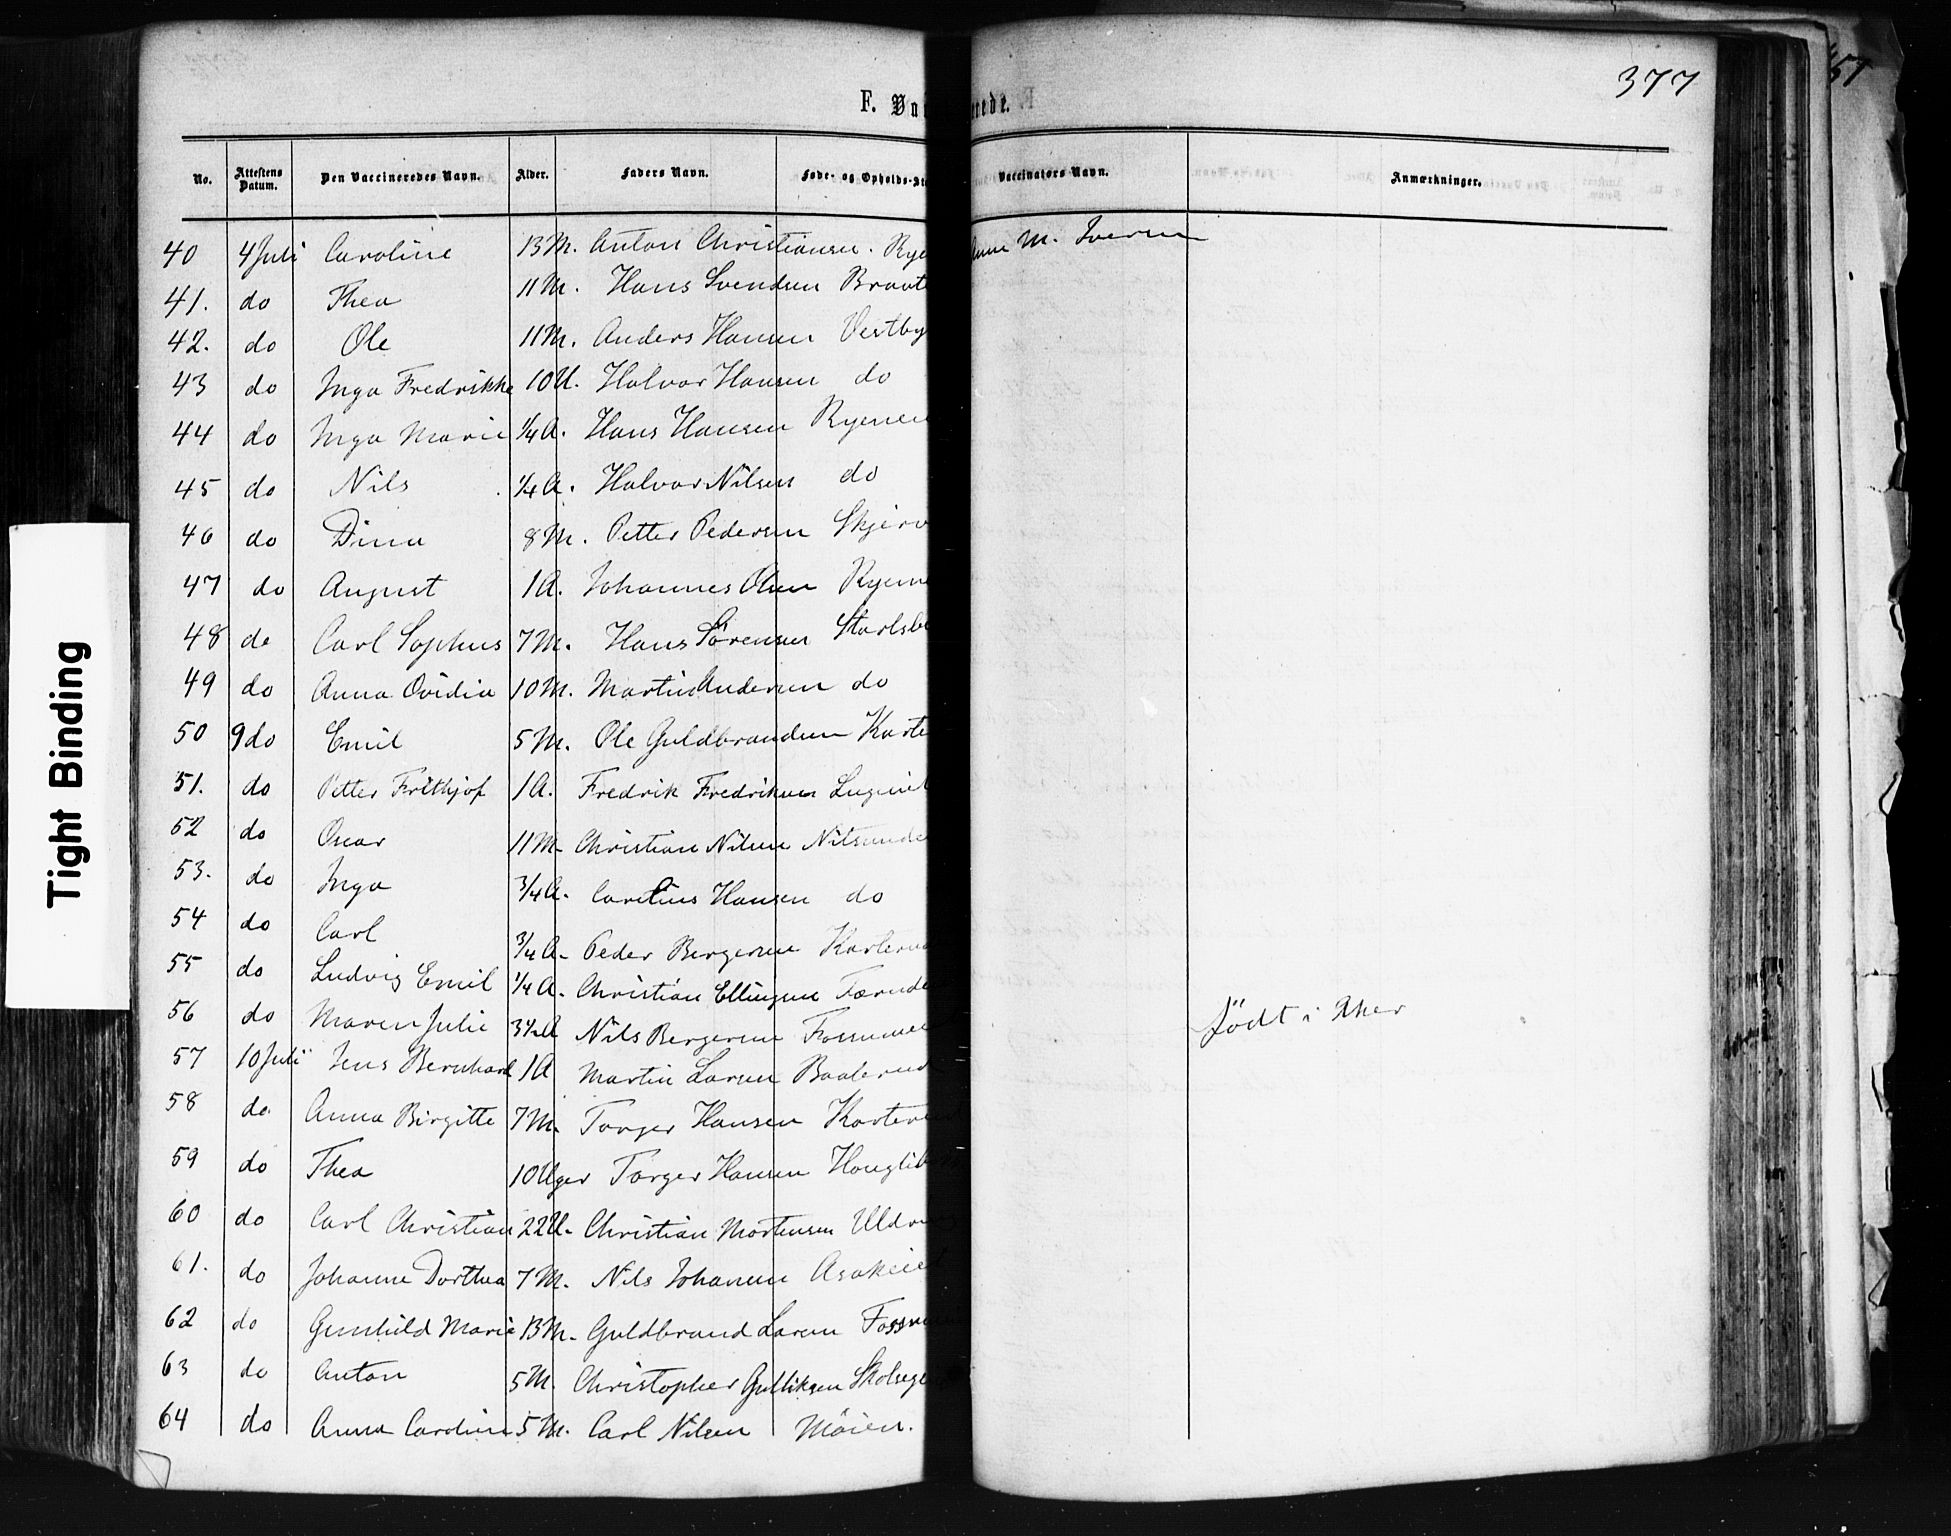 377
57
F. Vac erede.
No. Attestens Datum. Den Vaccineredes Navn. Alder. Faders Navn. Føde- og Opholds-St Vaccinators Navn. Anmærkninger.
40 4 Juli Caroline 13 M. Anton Christiansen. Rye M. Iversen
41. do Thea 11 M. Hans Svendsen Braate
42. do Ole 11 M. Anders Hansen Vestby
43 do Inga Fredrikke 10 U. Halvor Hansen do
44 do Inga Marie 1/4 A. Hans Hansen Ryenen
45 do Nils 1/4 A. Halvor Nilsen do
46 do Dina 8 M. Petter Pedersen Skjerv
47 do August 1 A. Johannes Olsen Ryenen
48 do Carl Sophus 7 M. Hans Sörensen Starlsb
49 do Anna Ovidia 10 M. Martin Andersen do
50 9 do Emil 5 M. Ole Guldbrandsen Karte
51. do Petter Frithjof 1 A. Fredrik Fredriksen
52 do Oscar 11 M. Christian Nilsen Nitsunde
53. do Inga 3/4 A. Carelius Hansen do
54 do Carl 3/4 A. Peder Bergersen Karterud
55 do Ludvig Emil 1/4 A. Christian Ellingsen
56 do Maren Julie 3 1/2 A Nils Bergersen Fossumei födt i Aker
57 10 Juli Jens Bernhard 1 A Martin Larsen Baalerud
58 do Anna Birgitte 7 M. Torger Hansen Karteru
59 do Thea 10 Uger Torger Hansen Hauglib
60 do Carl Christian 22 U. Christian Mortensen Uldre
61. do Johanne Dorthea 7 M. Nils Johansen Asakeie
62 do Gunhild Marie 13 M. Guldbrand Larsen Fossum
63 do Anton 5 M. Christopher Gulliksen Skolsege
64 do Anna Caroline 5 M. Carl Nilsen Möien.
Tight Binding